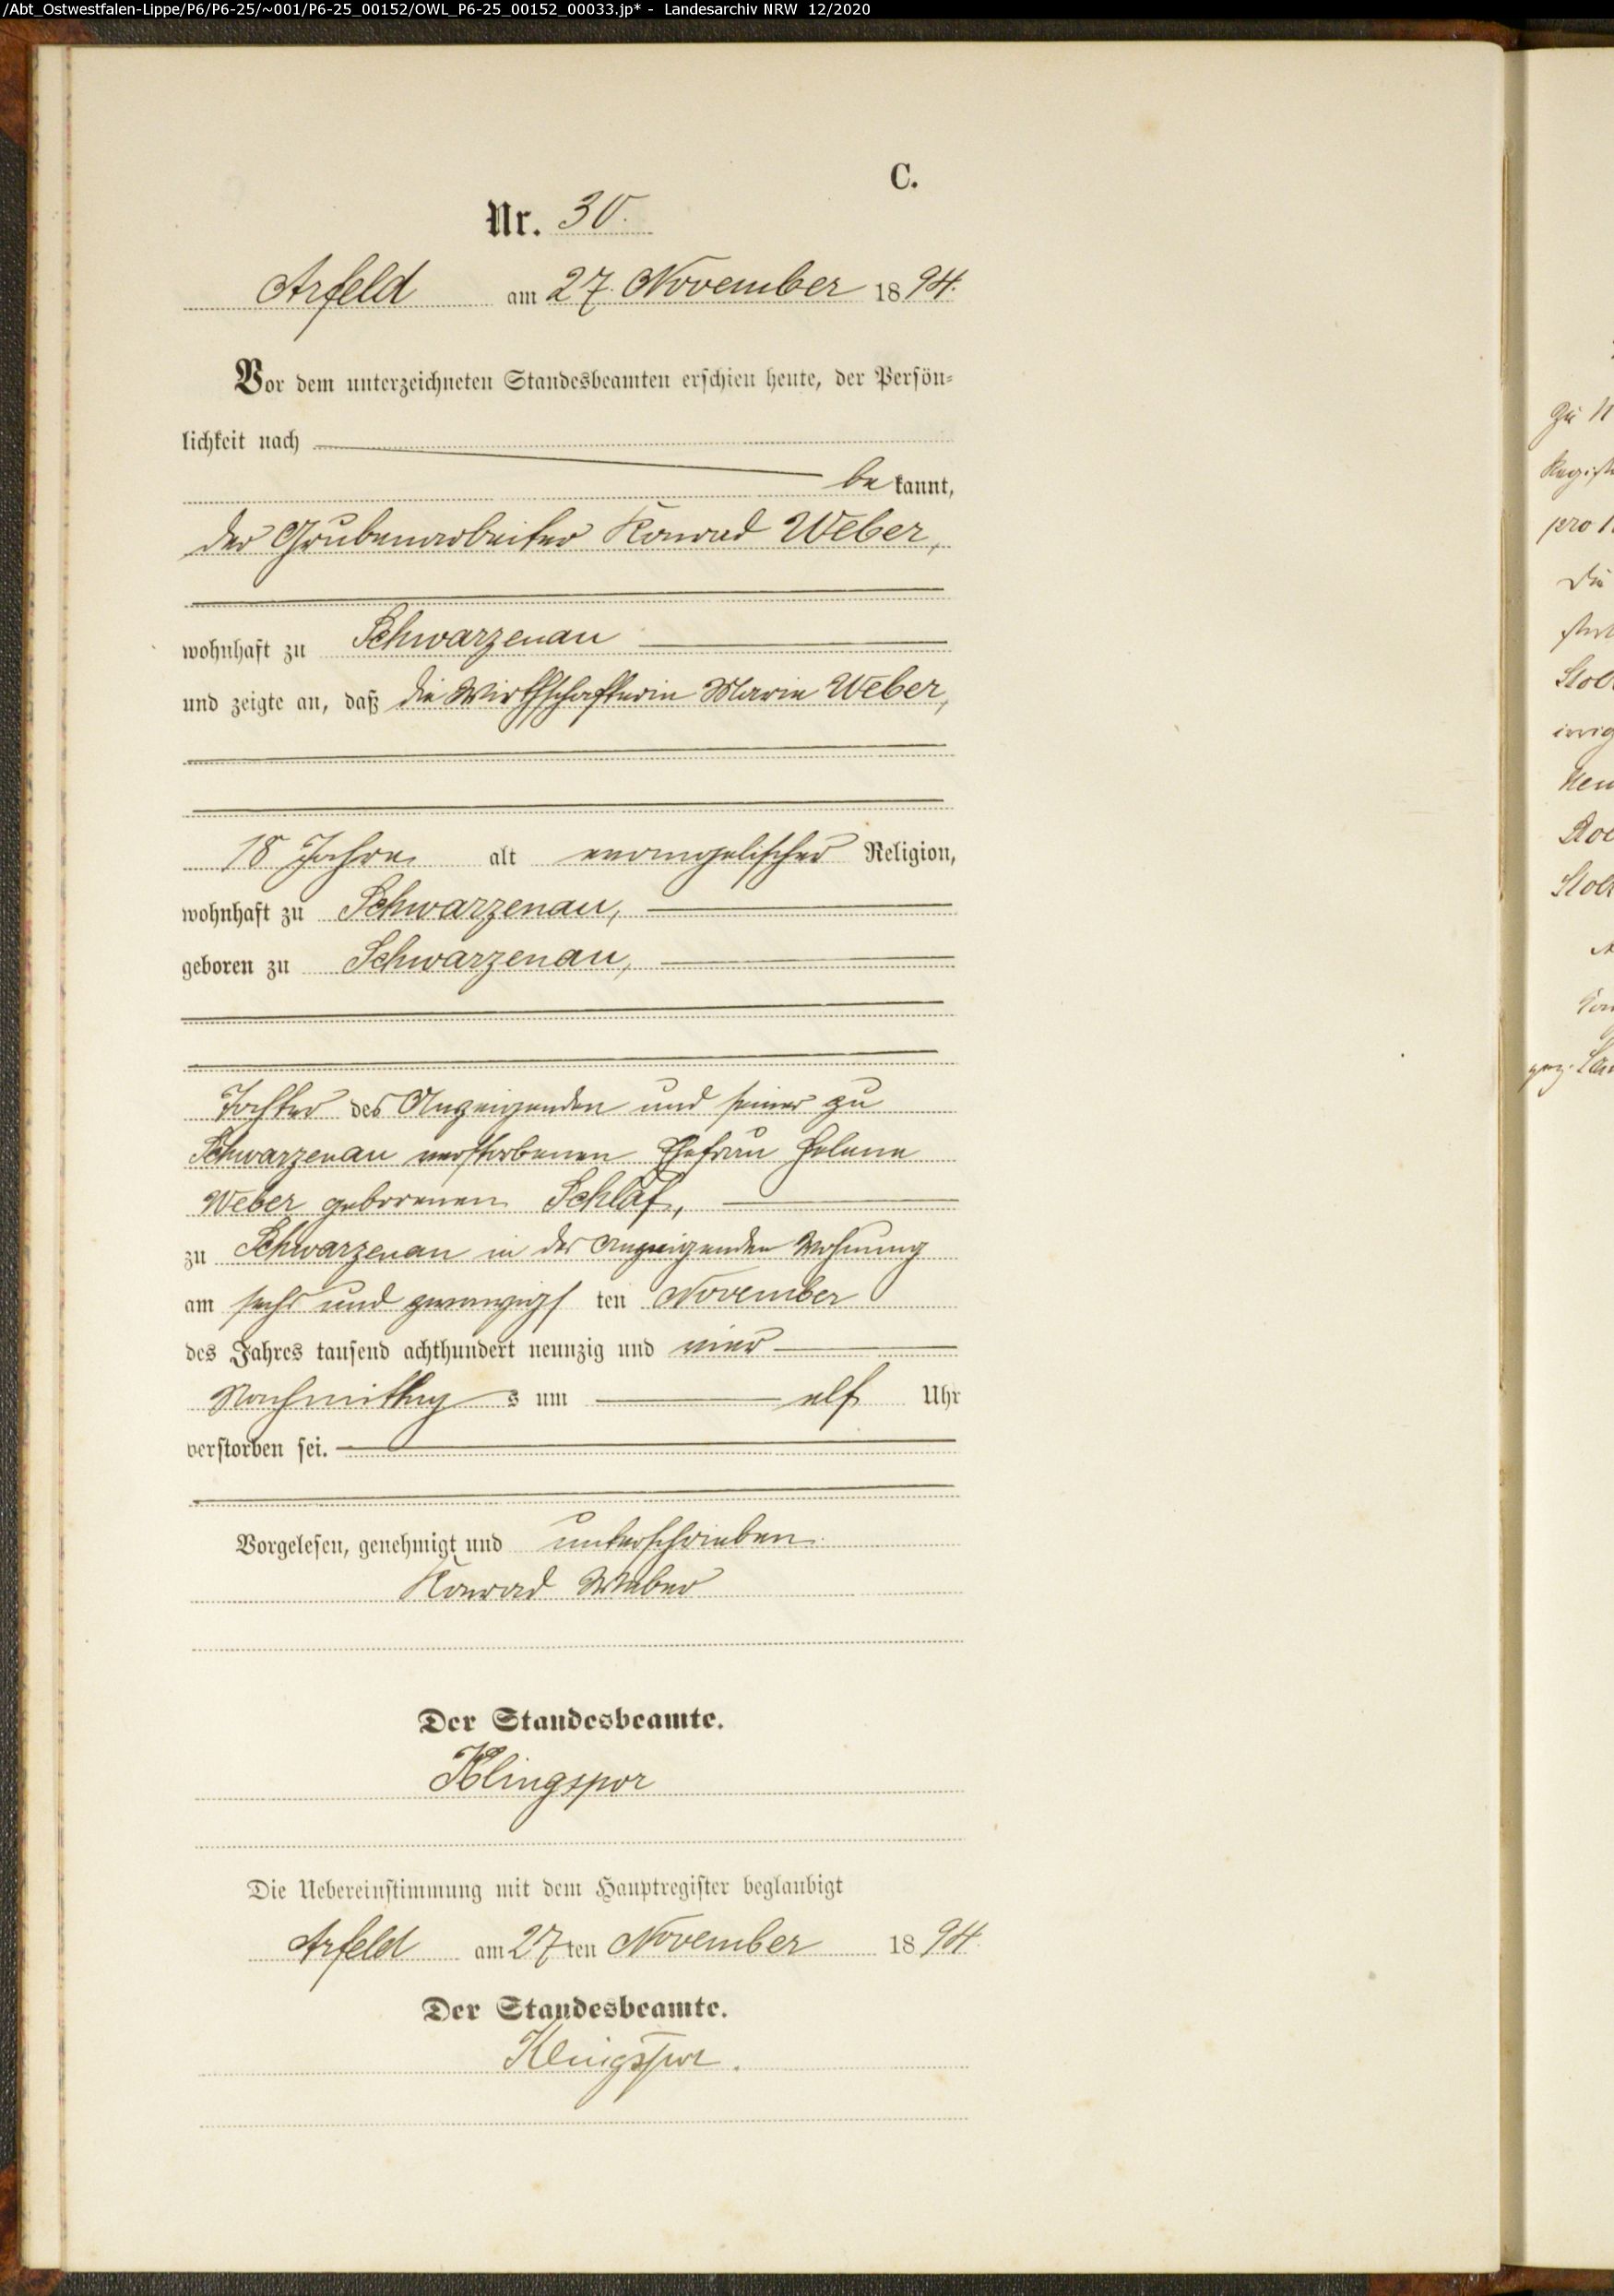 /Abt_Ostwestfalen-Lippe/P6/P6-25/~001/P6-25_00152/OWL_P6-25_00152_00033.jp* - Landesarchiv NRW 12/2020
C.
Nr. 30.
Arfeld am 27. November 1894.
Vor dem unterzeichneten Standesbeamten erschien heute, der Persön-
lichkeit nach
be kannt,
der Grubenarbeiter Konrad Weber,
wohnhaft zu Schwarzenau
und zeigte an, daß die Wirthschafterin Marie Weber,
18 Jahre alt evangelischer Religion,
wohnhaft zu Schwarzenau,
geboren zu Schwarzenau,
Tochter des Anzeigenden und seiner zu
Schwarzenau verstorbenen Ehefrau Helene
Weber geborenen Schlaf,
zu Schwarzenau in des Anzeigenden Wohnung
am sechs und zwanzigsten November
des Jahres tausend achthundert neunzig und vier
Nachmittags um elf Uhr
verstorben sei.
Vorgelesen, genehmigt und unterschrieben.
Konrad Weber
Der Standesbeamte.
Klingspor
Die Uebereinstimmung mit dem Hauptregister beglaubigt
Arfeld am 27ten November 1894.
Der Standesbeamte.
Klingspor.
Zu
pro
Die